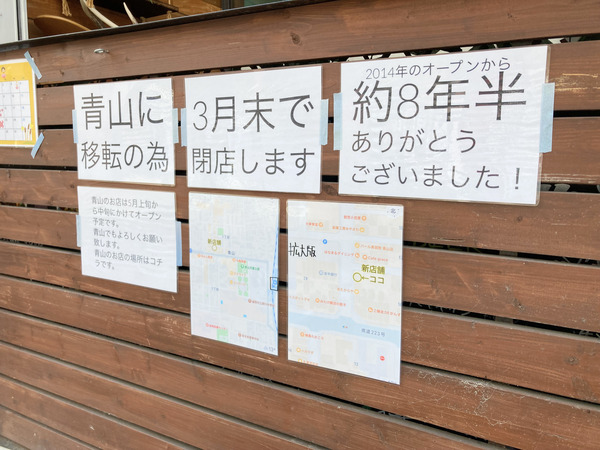 青山に
移転の為
3月末で
閉店します
2014年のオープンから
約8年半
ありがとう
ございました！
青山のお店は5月上旬か
ら中旬にかけてオープン
予定です。
青山でもよろしくお願い
致します。
青山のお店の場所はコチ
ラです。
新店舗
拡大版
新店舗
←ココ